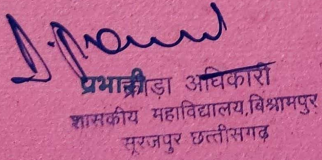 प्रभारी क्रीड़ा अधिकारी
शासकीय महाविद्यालय,विश्रामपुर
सूरजपुर छत्तीसगढ़